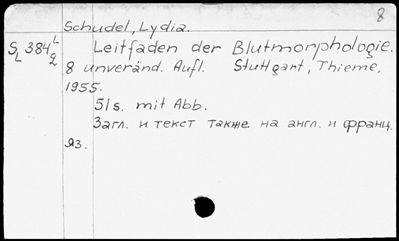 8
Schudel, Lydia.
SL 384 L/2 Leitfaden der Blutmorphologie.
8 unveränd. Aufl. Stuttgart, Thieme,
1955.
51s. mit Abb.
Загл. и текст также на англ. и франц.
яз.